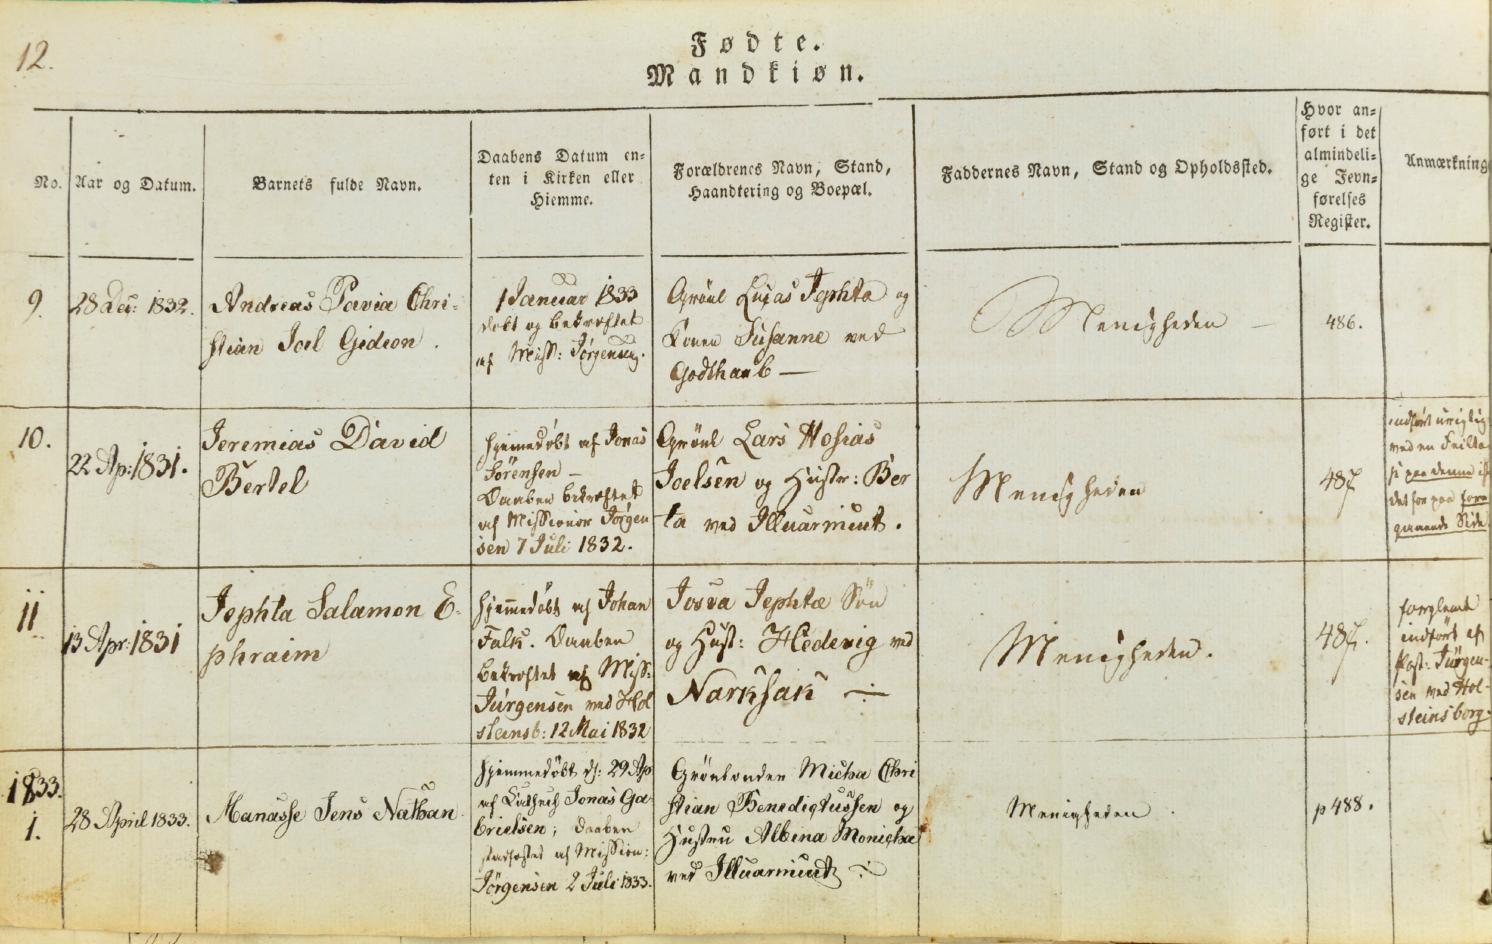 12.
Fødte.
Mandkiøn.
No.
Aar og Datum.
Barnets fulde Navn.
Daabens Datum en-
ten i Kirken eller
Hiemme.
Forældrenes Navn, Stand,
Haandtering og Boepæl.
Faddernes Navn, Stand og Opholdssted.
Hvor an-
ført i det
almindeli-
ge Jevn-
førelses
Register.
Anmærkning
9.
28 Dec: 1832.
Andreas Pavia Chri-
stian Joel Gideon.
1 Januar 1833
døbt og bekræftet
af Miss: Jørgensen.
Grönl Lucas Jephta og
Konen Susanne ved
Godthaab —
Menigheden —
486.
10.
22 Ap: 1831.
Jeremias David
Bertel
hjemmedöbt af Jonas
Sörensen —
Daaben bekræftet
af Missionær Jørgen
sen 7 Juli 1832.
Grönl Lars Hosias
Joelsen og Hustr: Ber
ta ved Illuarmiut.
Menigheden
487
indført urigtig
ved en Feilta-
paa denne
det for paa fore
gaaende Side.
11
13 Apr: 1831
Jephta Salamon E-
phraim
hjemmedöbt af Johan
Falk. Daaben
bekræftet af Miss:
Jürgensen ved Hol
steinsb: 12 Mai 1832
Josva Jephtæ Sön
og Hust: Hedevig ved
Narksak ÷
Menigheden.
487.
forglemt
indført af
Past: Jürgen-
sen ved Hol-
steinsborg.
1833.
1.
28 April 1833.
Manasse Jens Nathan
hjemmedöbt d: 29 Ap
af Cathech Jonas Ga-
brielsen; daaben
stadfæstet af Mission:
Jørgensen 2 Juli 1833.
Grönlænder Micha Chri
stian Benedictussen og
Hustru Albina Monicha
ved Illuarmiut ÷
Menigheden.
p 488.